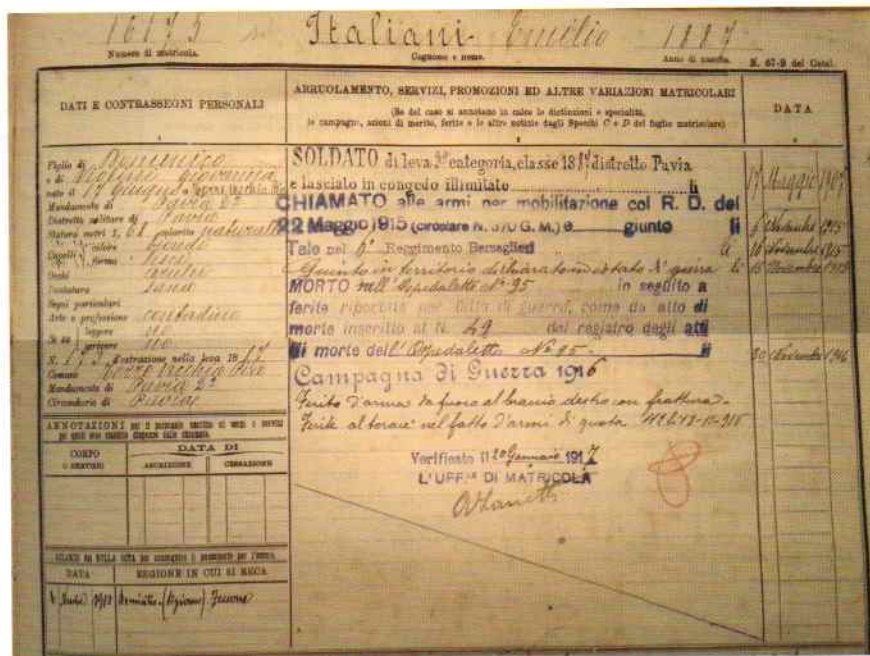 16173 Italiani Emilio 1887
Numero di matricola. Cognome e nome. Anno di nascita. N. 67-B del Catal.
DATI E CONTRASSEGNI PERSONALI
Figlio di Domenico
e di Giovanna
nato il 17 Giugno
Mandamento di Pavia 2°
Distretto militare di Pavia
Statura metri 1, 68 colorito naturale
Capelli colore biondi
forma lisci
Occhi cerulei
Dentatura sana
Segni particolari
Arte o professione contadino
Se sa leggere no
scrivere no
N. estrazione nella leva 1887
Comune Torre Vecchia Pia
Mandamento di Pavia 2°
Circondario di Pavia
ANNOTAZIONI
CORPO
O SERVIZIO
DATA DI
ASCRIZIONE CESSAZIONE
DATA REGIONE IN CUI SI RECA
ARRUOLAMENTO, SERVIZI, PROMOZIONI ED ALTRE VARIAZIONI MATRICOLARI
(Se del caso si annotano in calce le distinzioni e specialità,
le campagne, azioni di merito, ferite e le altre notizie dagli Specchi C e D del foglio matricolare)
DATA
SOLDATO di leva 3ª categoria, classe 1887 distretto Pavia
e lasciato in congedo illimitato li 17 Maggio 1907
CHIAMATO alle armi per mobilitazione col R. D. del
22 Maggio 1915 (circolare N. 370 G. M.) e giunto li Novembre 1915
Tale nel 6° Reggimento Bersaglieri li 16 Novembre 1915
Giunto in territorio dichiarato in istato di guerra li
MORTO nell'Ospedaletto N° 95 in seguito a
ferite riportate per fatto di guerra, come da atto di
morte inscritto al N. 49 del registro degli atti
di morte dell'Ospedaletto No 95 - li 1916
Campagna di Guerra 1916
Ferito d'arma da fuoco al braccio destro con frattura -
Ferite al torace nel fatto d'armi di quota
Verificato li 20 Gennaio 1917
L'UFF.LE DI MATRICOLA